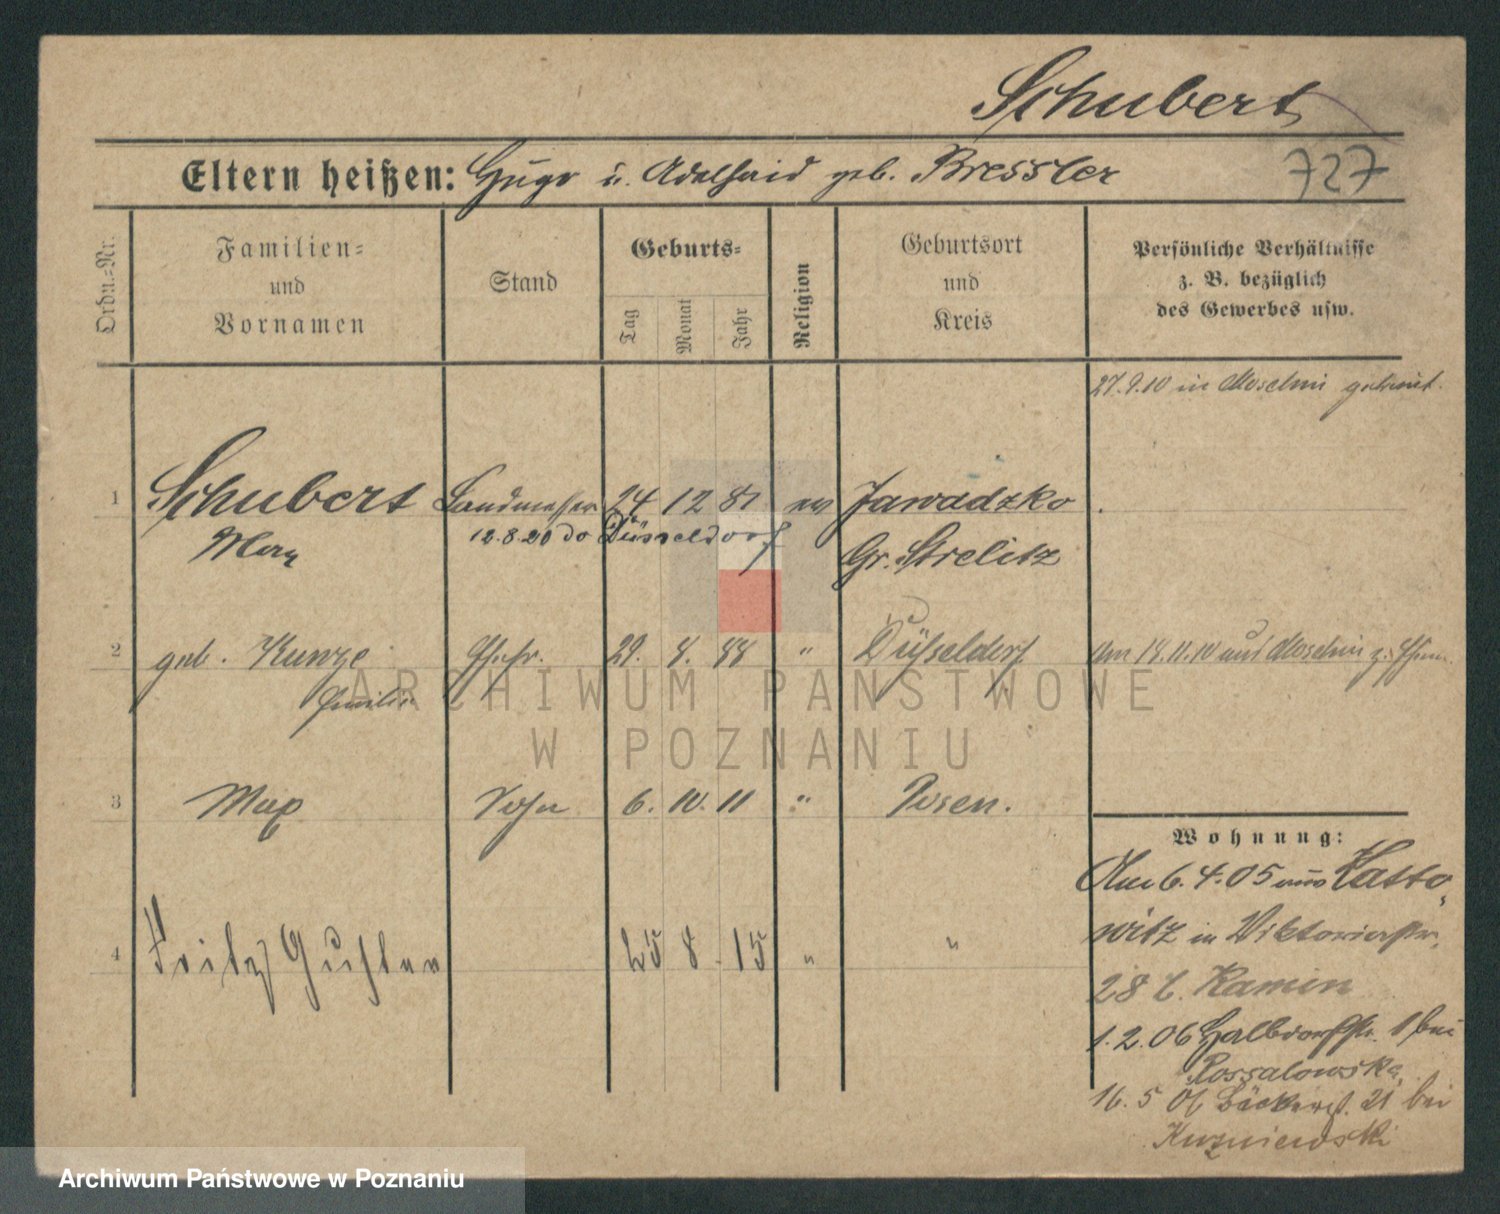 Schubert
Eltern heißen: Hugo u. Adelheid geb. Bressler
727
Ordn.=Nr.
Familien=
und
Vornamen
Stand
Geburts=
Tag
Monat
Jahr
Religion
Geburtsort
und
Kreis
Persönliche Verhältnisse
z. B. bezüglich
des Gewerbes usw.
27.9.10 in
1 Schubert Landmesser 24 12 81 ev Zawadzko
Max 12.8.20 do Düsseldorf Gr. Strelitz
2 geb. Kunze Ehefr. 29. 8. 88 " Düsseldorf
Emilie
Am 18.11.10
3 Max Sohn 6. 10. 11 " Posen.
4 Fritz Gustav 25 8 15 " "
Wohnung:
Am 6. 4. 05 aus Katto,
witz in Viktoriastr.
28 b. Kamin
1. 2. 06 Halbdorfstr. 1 bei
Rossalowska
16. 5 06 Bäckerst. 21 bei
Kuzniewski
ARCHIWUM PAŃSTWOWE
W POZNANIU
Archiwum Państwowe w Poznaniu